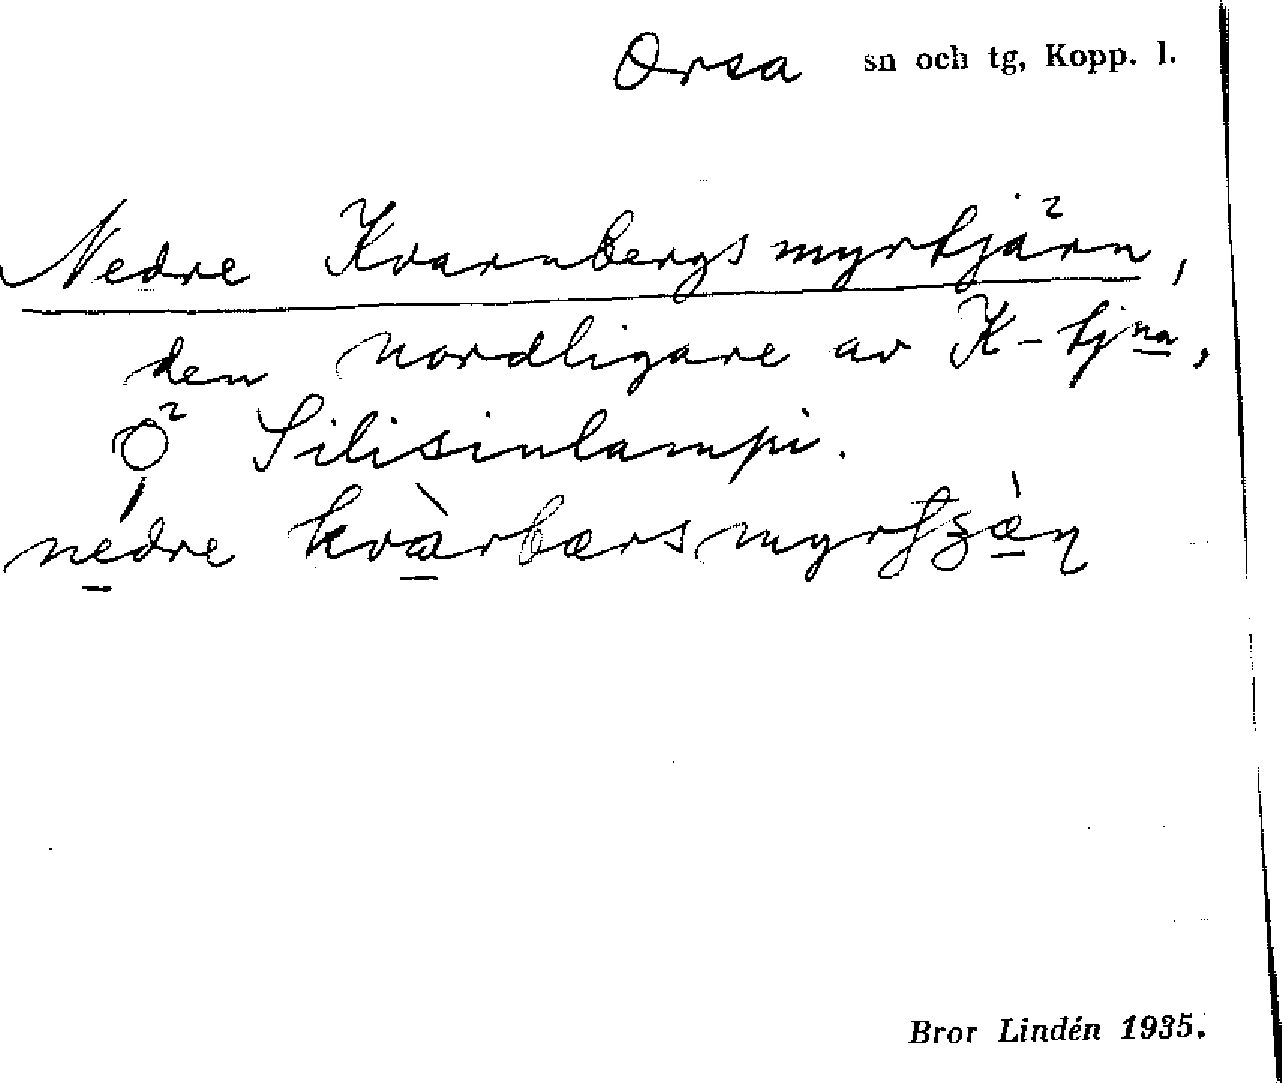 Orsa sn och tg, Kopp. l.
Nedre Kvarnbergsmyrtjärn,
den nordligare av K-tjna,
Ö² Silisinlampi.
nedre kvàrbærsmyrtʂæ̀ɳ
Bror Lindén 1935.